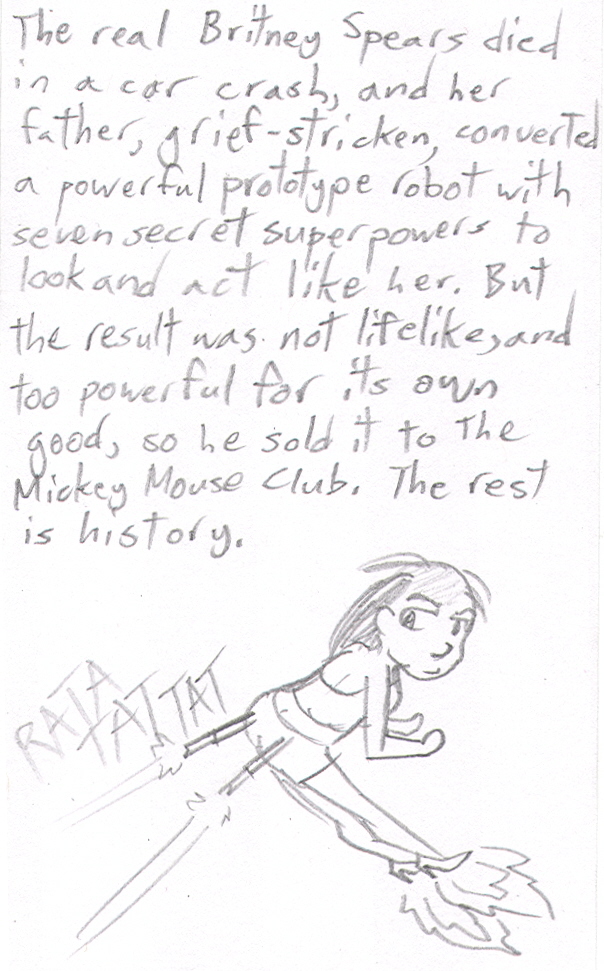 The real Britney Spears died
in a car crash, and her
father, grief-stricken, converted
a powerful prototype robot with
seven secret superpowers to
look and act like her. But
the result was not lifelike, and
too powerful for its own
good, so he sold it to The
Mickey Mouse Club. The rest
is history.
RATA
TAT TAT